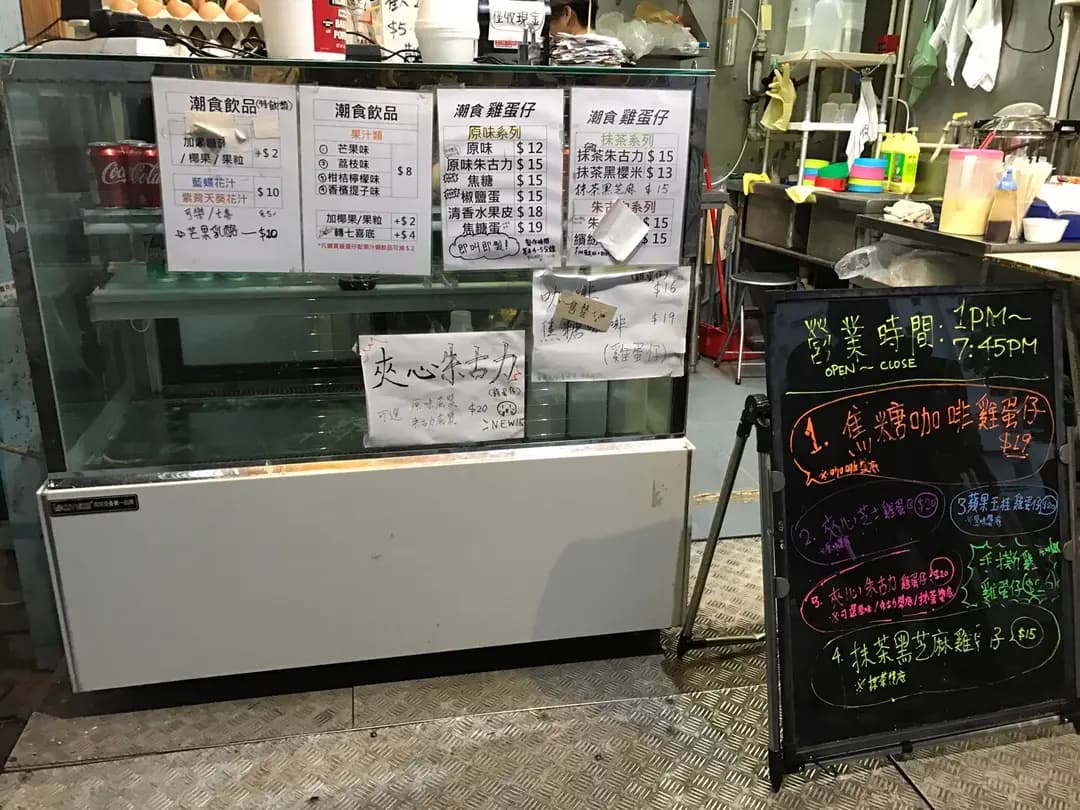 僅收現金
Coca-Cola
潮食飲品(特飲類)
/ 椰果 / 果粒 + $ 2
藍蝶花汁
紫背天葵花汁
$ 10
芒果乳酪 — $10
潮食飲品
果汁類
① 芒果味
② 荔枝味
③ 柑桔檸檬味
④ 香檳提子味
$ 8
加椰果/果粒 +$ 2
轉七喜底 +$ 4
潮食 雞蛋仔
原味系列
原味 $ 12
原味朱古力 $ 15
焦糖 $ 15
椒鹽蛋 $ 15
清香水果皮 $ 18
焦糖蛋 $ 19
即叫即製!
製作時間
潮食 雞蛋仔
抹茶系列
抹茶朱古力 $ 15
抹茶黑櫻米 $ 13
抹茶黑芝麻 $ 15
$ 15
$ 15
(雞蛋仔)
$16
焦糖 啡 $19
(雞蛋仔)
夾心朱古力
(雞蛋仔)
可選 原味底漿
朱古力底漿
$20
NEW
營業時間: 1PM~
7:45PM
OPEN ~ CLOSE
1. 焦糖咖啡雞蛋仔
$19
2. 夾心芝士雞蛋仔 $20
3 蘋果玉桂雞蛋仔 $20
手撕雞
雞蛋仔
5. 夾心朱古力雞蛋仔 $20
※可選原味/朱古力漿底/抹茶漿底
4. 抹茶黑芝麻雞 仔 $15
※抹茶漿底